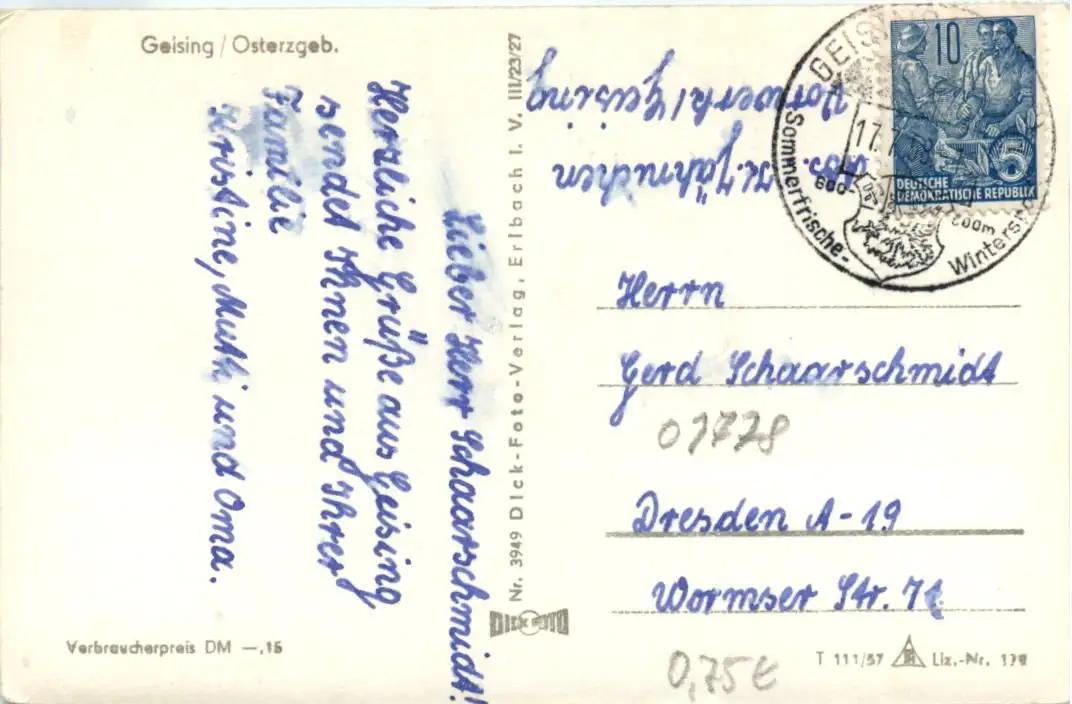 Geising / Osterzgeb.
Lieber Herr Schaarschmidt!
Herzliche Grüße aus Geising
sendet Ihnen und Ihrer
Familie
Kristine, Mutti und Oma.
Verbraucherpreis DM —,15
Nr. 3949 Dick-Foto-Verlag, Erlbach i. V. III/23/27
DICK FOTO
Abs. K. Jähnichen
Vorwerk/Geising
GEISING
17.7.
Sommerfrische-
600-
200m
Winters
10
5
DEUTSCHE
DEMOKRATISCHE REPUBLIK
Herrn
Gerd Schaarschmidt
01728
Dresden A-19
Wormser Str. 71
0,75€
T 111/57 Liz.-Nr. 179